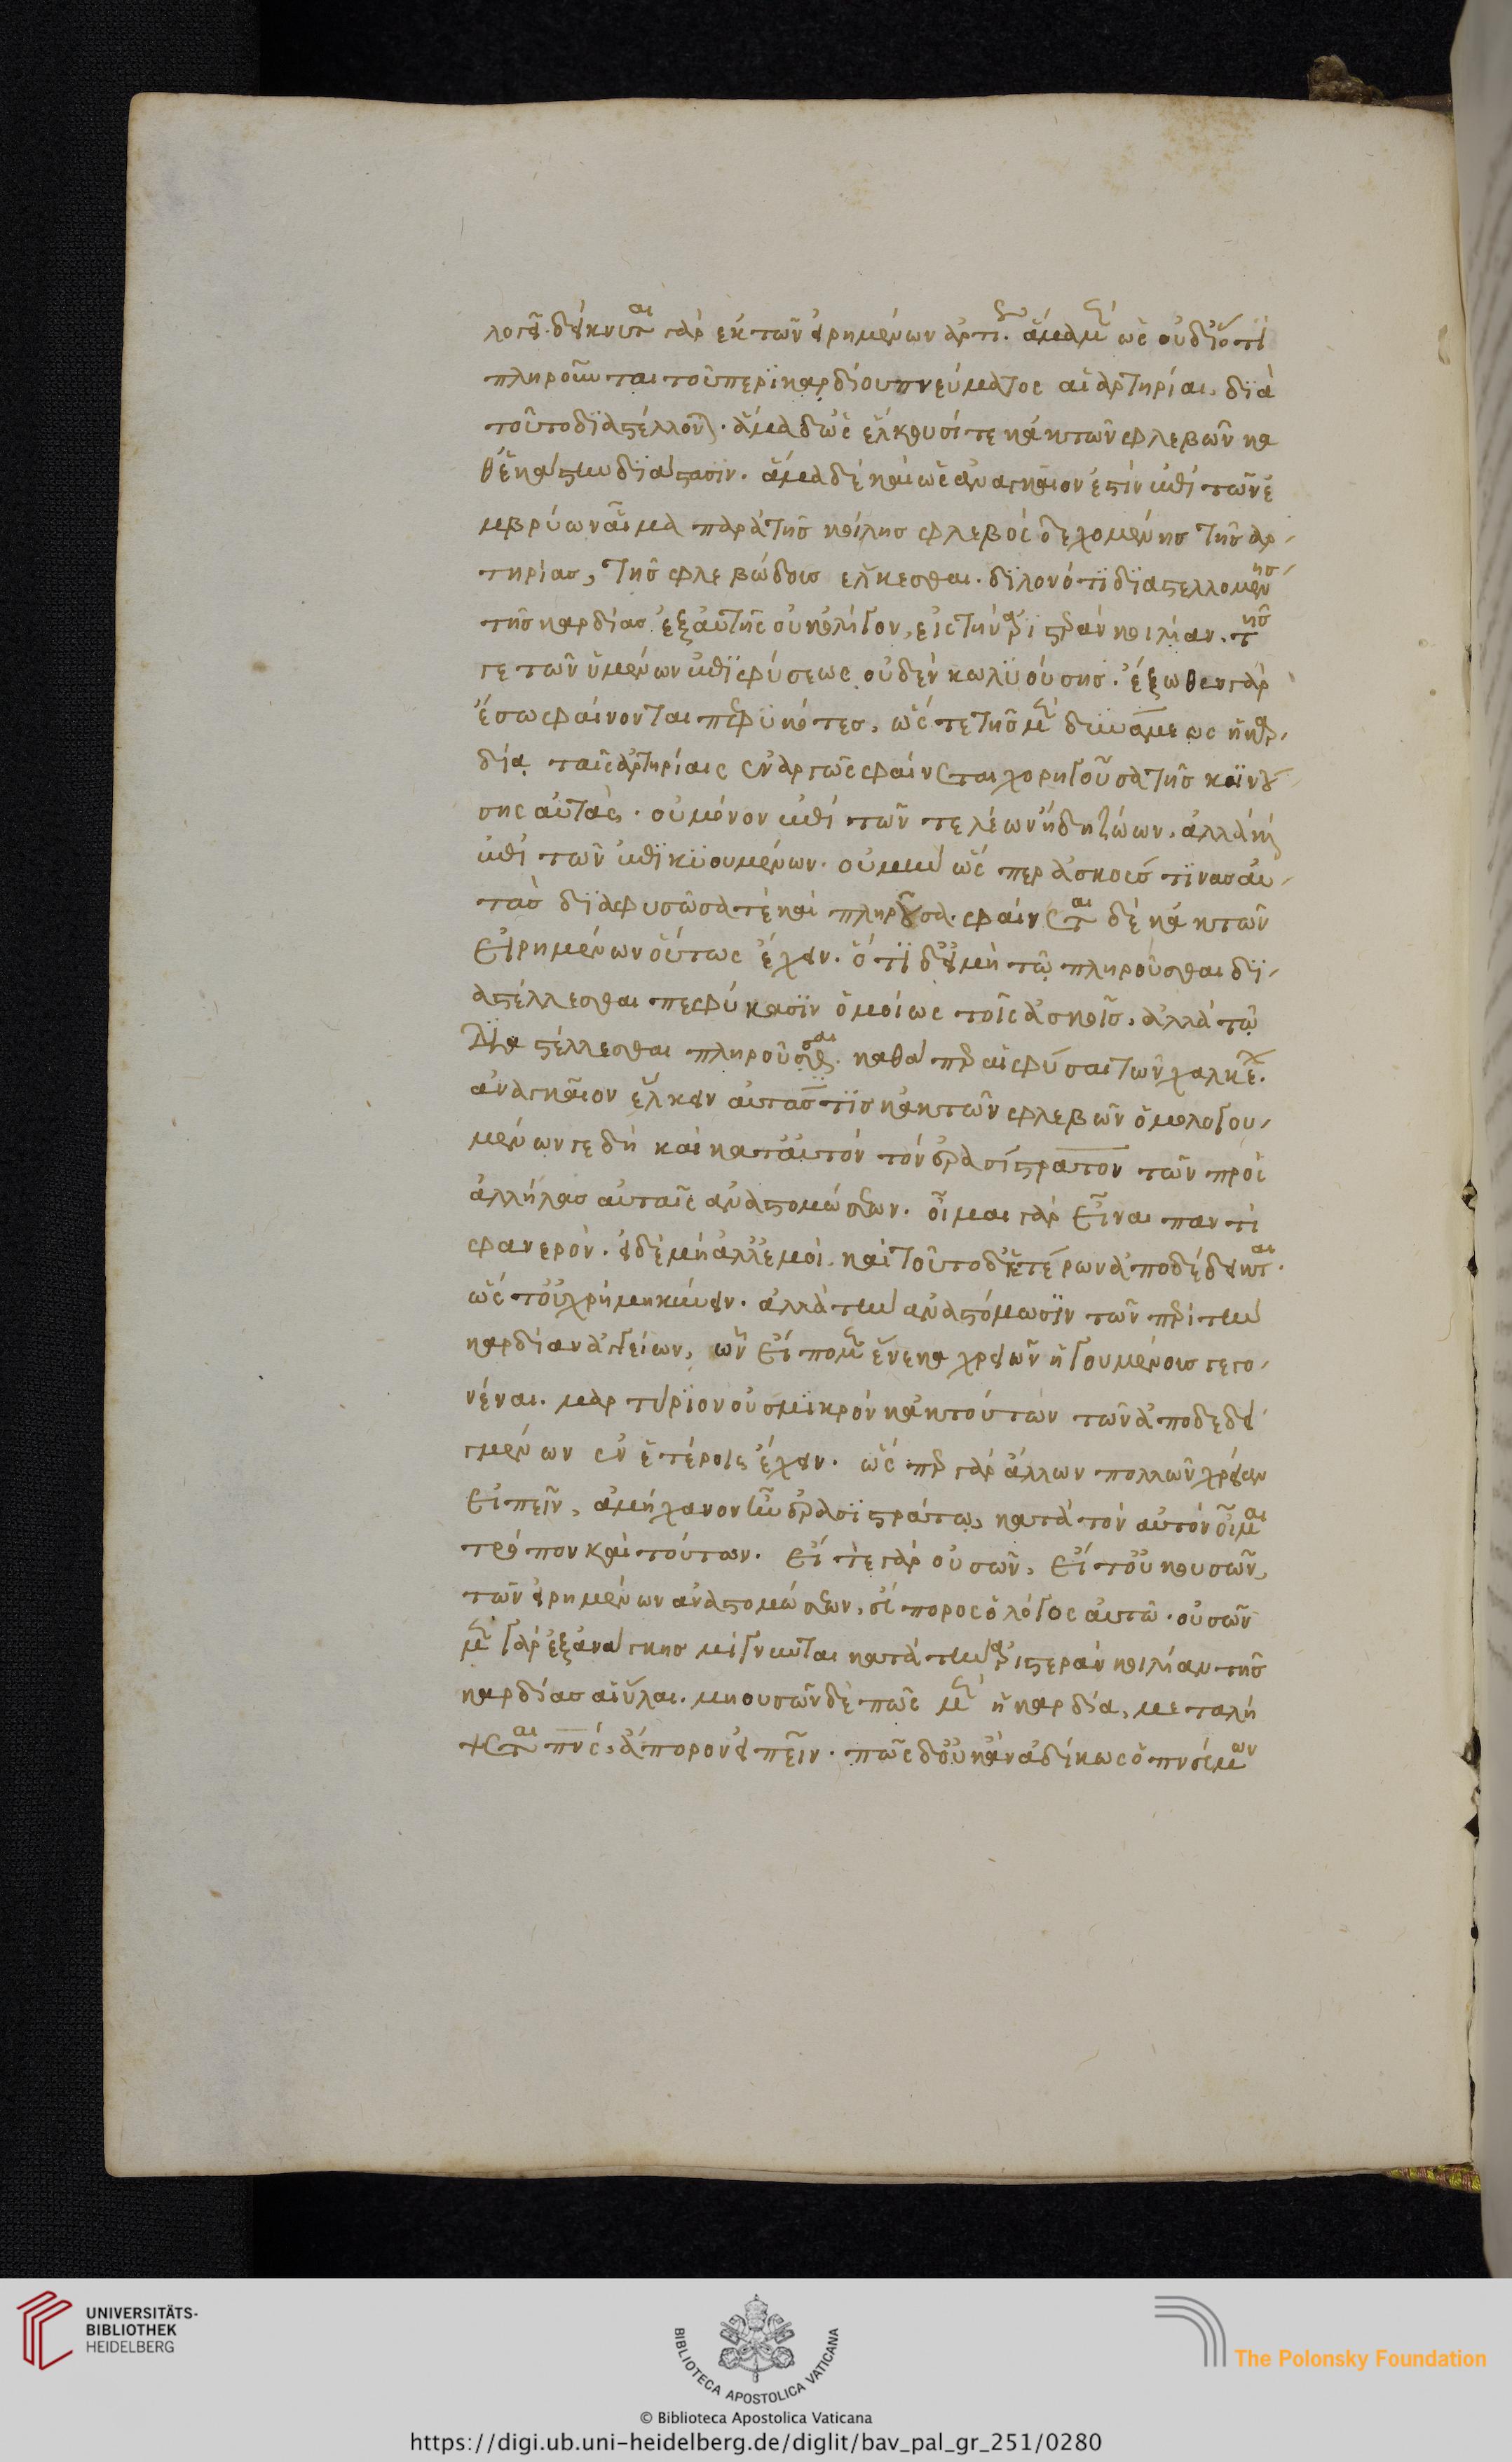 λογεῖ. δείκνυται γὰρ ἐκ τῶν εἰρημένων ἄρτι. ἅμα μὲν ὡς οὐ διότι
πληροῦνται τοῦ περικαρδίου πνεύματος αἱ ἀρτηρίαι, διὰ
τοῦτο διαστέλλονται. ἅμα δ' ὡς ἕλκουσί τι κἀκ τῶν φλεβῶν κα
θ' ἑκάστην διάστασιν. ἅμα δὲ καὶ ὡς ἀναγκαῖον ἐστὶν ἐπὶ τῶν ἐ
μβρύων αἷμα παρὰ τῆς κοίλης φλεβὸς δεχομένης τῆς ἀρ
τηρίας, τῆς φλεβώδους ἕλκεσθαι. διλονότι διαστελλομένης
τῆς καρδίας ἐξ αὐτῆς οὐκ ὀλίγον, εἰς τὴν ἀριστερὰν κοιλίαν. τῆς
γε τῶν ὑμένων ἐπιφύσεως οὐδὲν κωλυούσης. ἔξωθεν γὰρ
ἔσω φαίνονται πεφυκότες, ὥς τε τῆς μὲν δυνάμεως ἡ καρ
δία ταῖς ἀρτηρίαις ἐναργῶς φαίνεται χορηγοῦσα τῆς κινού
σης αὐτάς. οὐ μόνον ἐπὶ τῶν τελέων ἤδη ζώων, ἀλλὰ κἀ
πὶ τῶν ἐπικυουμένων. οὐ μὴν ὥς περ ἀσκούς τινας αὐ
τὰς διαφυσῶσα τὲ καὶ πληροῦσα. φαίνεται δὲ κἀκ τῶν
εἰρημένων οὕτως ἔχειν. ὅτι δ' εἰ μὴ τῷ πληροῦσθαι δι
αστέλλεσθαι πεφύκασιν ὁμοίως τοῖς ἀσκοῖς, ἀλλὰ τῷ
διαστέλλεσθαι πληροῦσθαι. καθάπερ αἱ φύσαι τῶν χαλκέων.
ἀναγκαῖον ἕλκειν αὐτὰς τις κἀκ τῶν φλεβῶν ὁμολογου
μένων γε δὴ καὶ κατ' αὐτὸν τὸν ἐρασίστρατον τῶν πρὸς
ἀλλήλας αὐταῖς ἀναστομώσεων. οἶμαι γὰρ εἶναι παντὶ
φανερόν. εἰ δὲ μὴ ἀλλ' ἐμοὶ, καὶ τοῦτο δ' ἑτέρων ἀποδέδεικται.
ὥς τοὐχρημηκινειν. ἀλλὰ τὴν ἀναστόμωσιν τῶν περὶ τὴν
καρδίαν ἀγγείων, ὧν εἴπομεν ἕνεκα χρειῶν ἡγουμένοις γεγο
νέναι. μαρτύριον οὐ σμικρὸν κἀκ τούτων τῶν ἀποδεδει
γμένων ἐν ἑτέροις ἔχειν. ὥς περ γὰρ ἄλλων πολλῶν χρείαν
εἰπεῖν, ἀμήχανον τῷ ἐρασιστράτῳ, κατὰ τὸν αὐτὸν οἶμαι
τρόπον καὶ τούτων. εἴ τε γὰρ οὐσῶν, εἴ τ' οὐκ οὐσῶν,
τῶν εἰρημένων ἀναστομώσεων, ἄπορος ὁ λόγος αὐτῷ. οὐσῶν
μὲν γὰρ ἐξ ἀνάγκης μίγνυνται κατὰ τὴν ἀριστερὰν κοιλίαν τῆς
καρδίας αἱ ὗλαι. μὴ οὐσῶν δὲ πῶς μὲν ἡ καρδία, μεταλή
ψεται πνς, ἄπορον εἰπεῖν. πῶς δ' οὐκ ἂν ἀδίκως ὁ πνεύμων
UNIVERSITÄTS-
BIBLIOTHEK
HEIDELBERG
BIBLIOTECA APOSTOLICA VATICANA
The Polonsky Foundation
© Biblioteca Apostolica Vaticana
https://digi.ub.uni-heidelberg.de/diglit/bav_pal_gr_251/0280